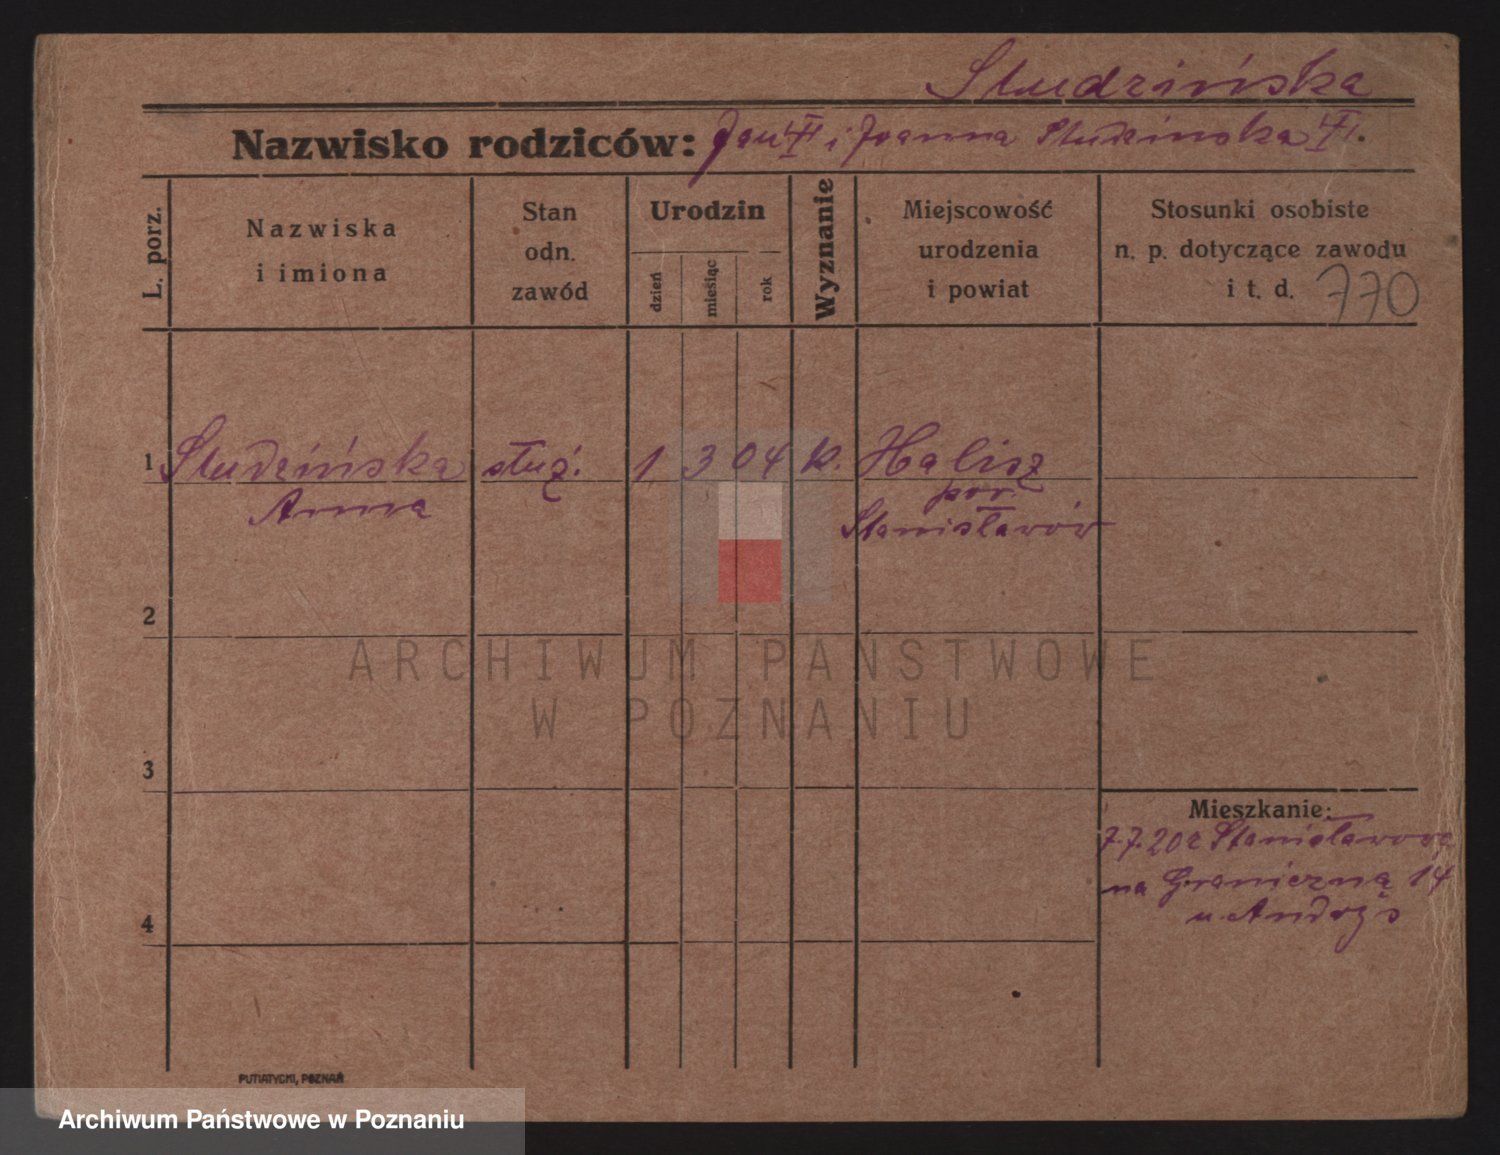 Studzińska
Nazwisko rodziców: Jan i Joanna Studzinska
L. porz.
Nazwiska
i imiona
Stan
odn.
zawód
Urodzin
dzień
miesiąc
rok
Wyznanie
Miejscowość
urodzenia
i powiat
Stosunki osobiste
n. p. dotyczące zawodu
i t. d. 770
1 Studzińska służ. 1 3 04 k. Halisz
Anna pow.
Stanisławów
2
ARCHIWUM PAŃSTWOWE
W POZNANIU
3
Mieszkanie:
7.7.20 z Stanisławowa
na Graniczną 14
u
4
PUTIATYCKI, POZNAŃ
Archiwum Państwowe w Poznaniu